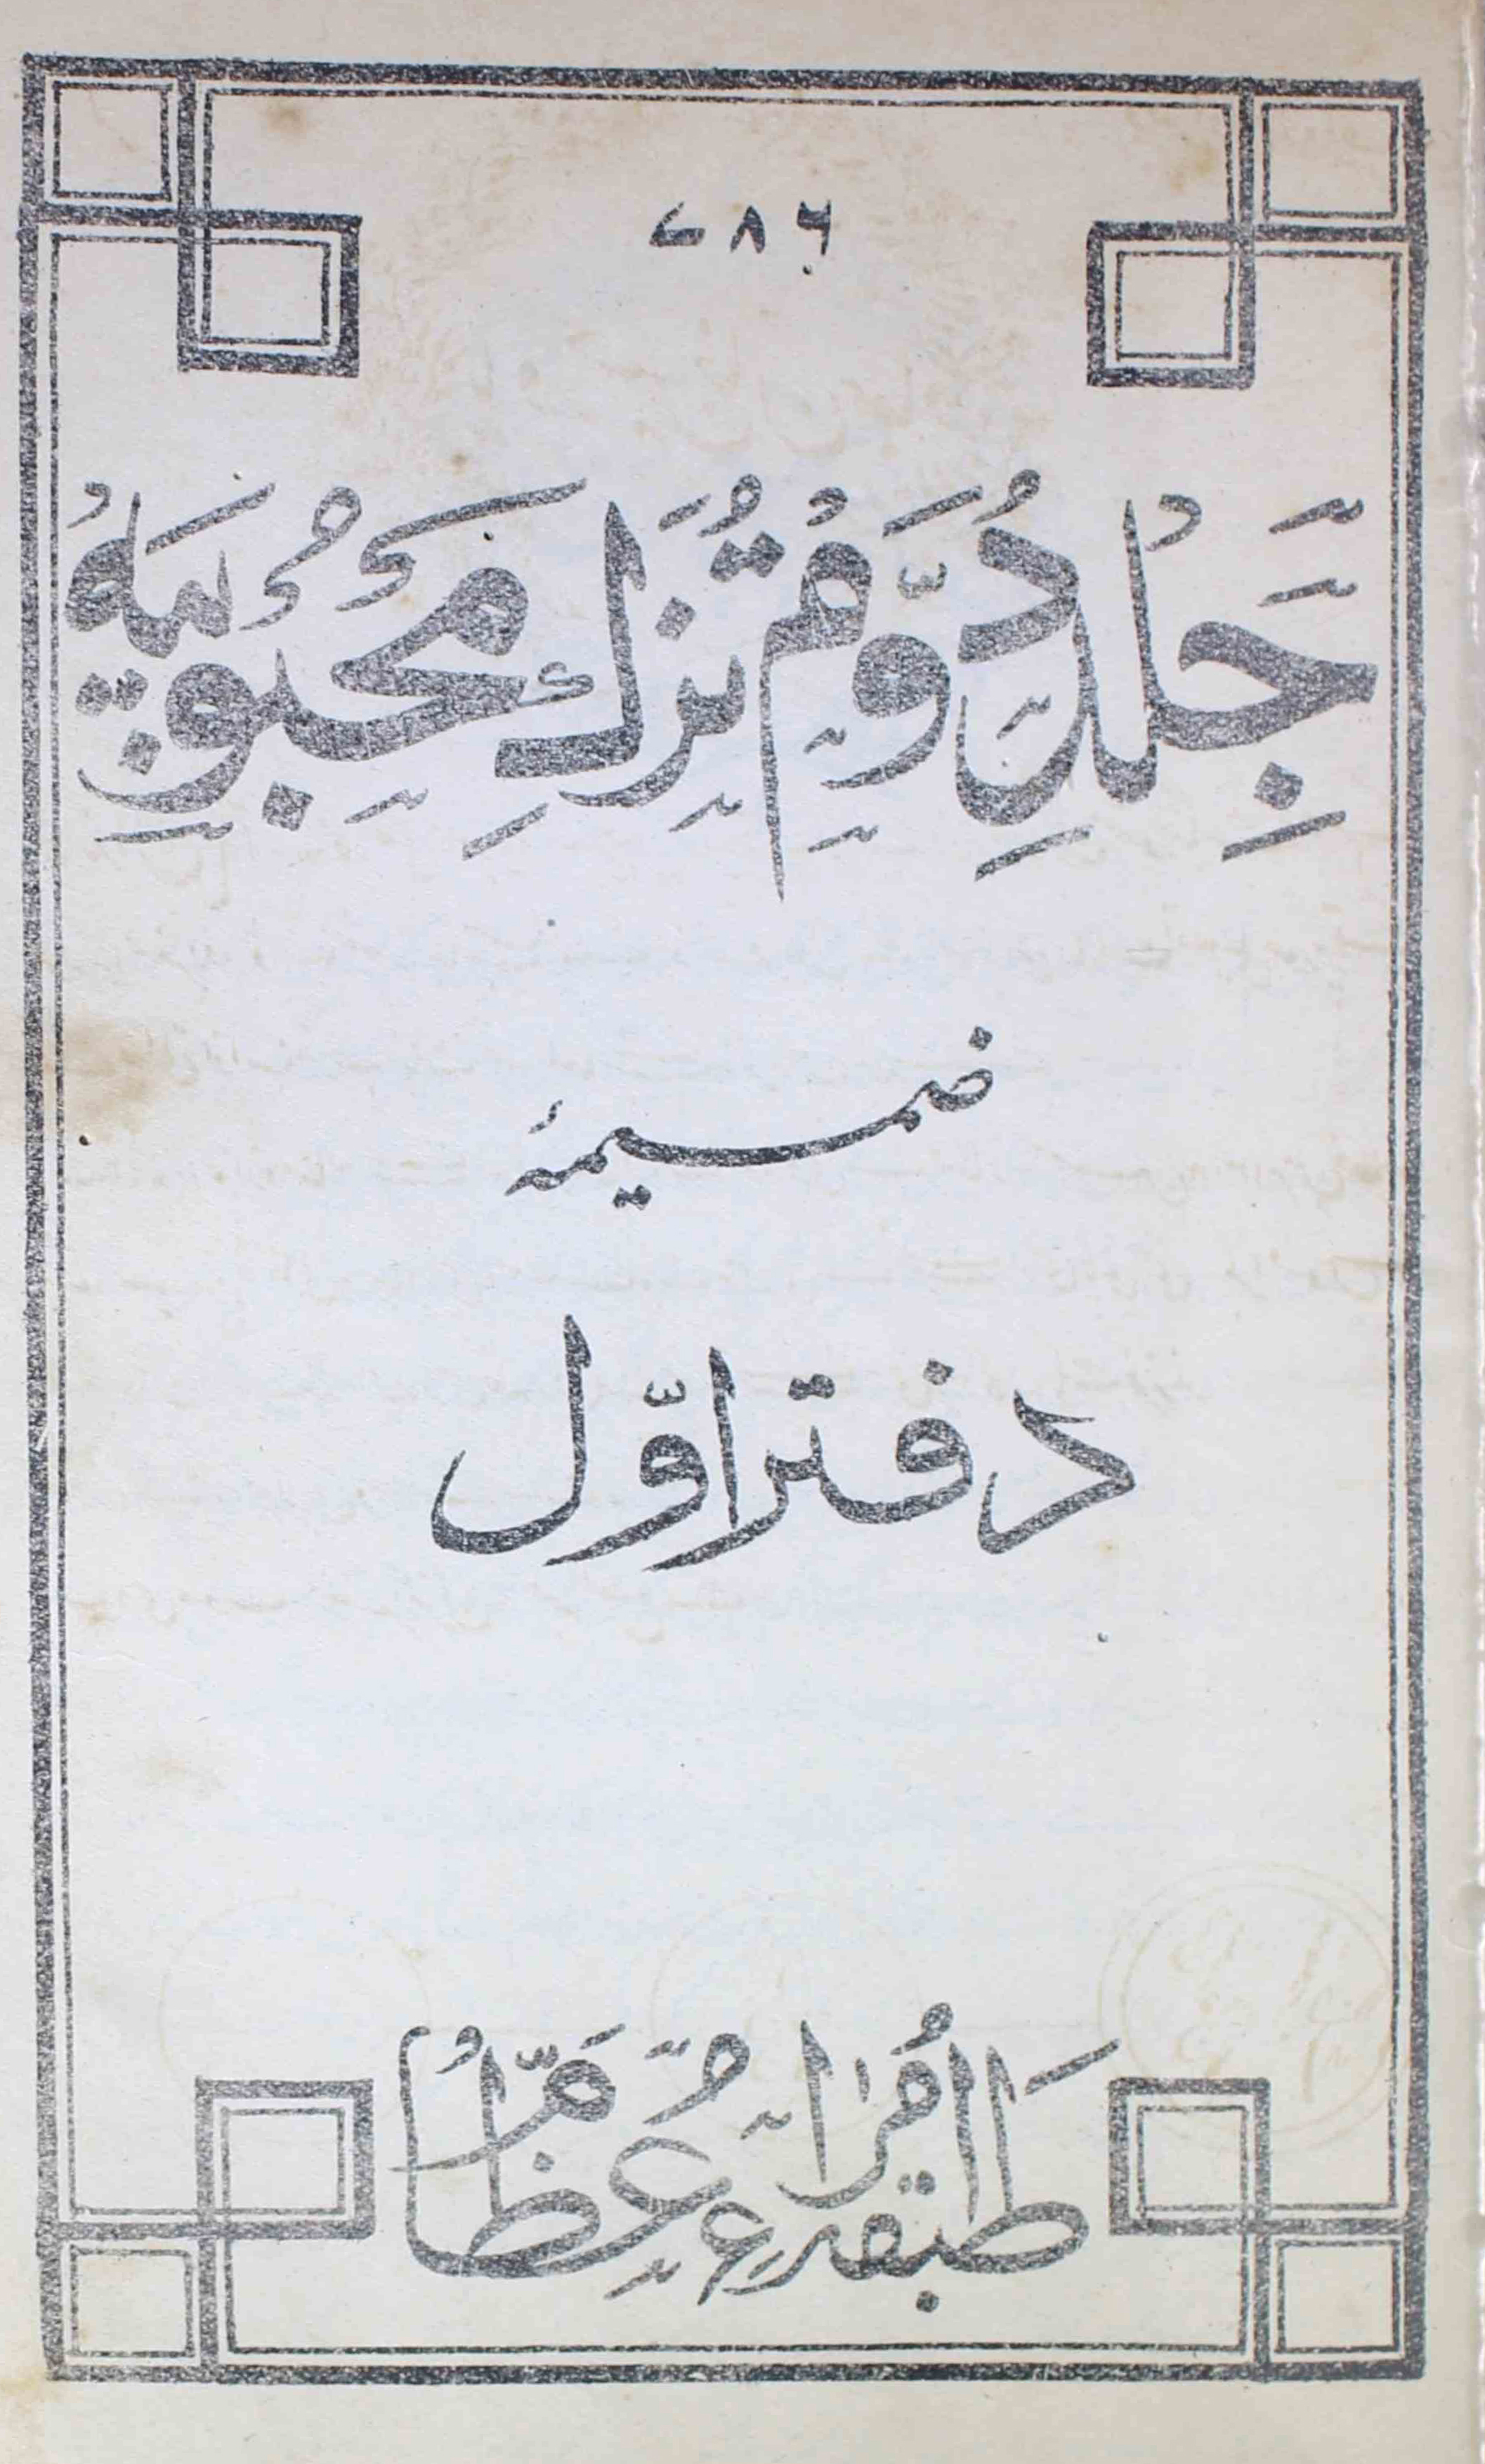 ۷۸۶
جِلدِ دوّم تزکِ محبوبیہ
ضمیمۂ
دفتر اوّل
طبقۂ امرائے عظام